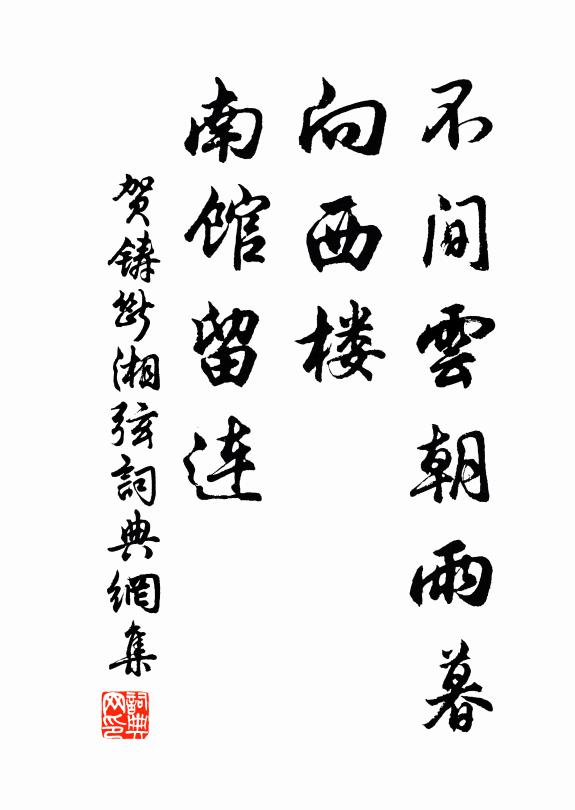 不间雲朝雨暮
向西楼
南馆留连
贺铸断湘弦詞典網集
詞典网印